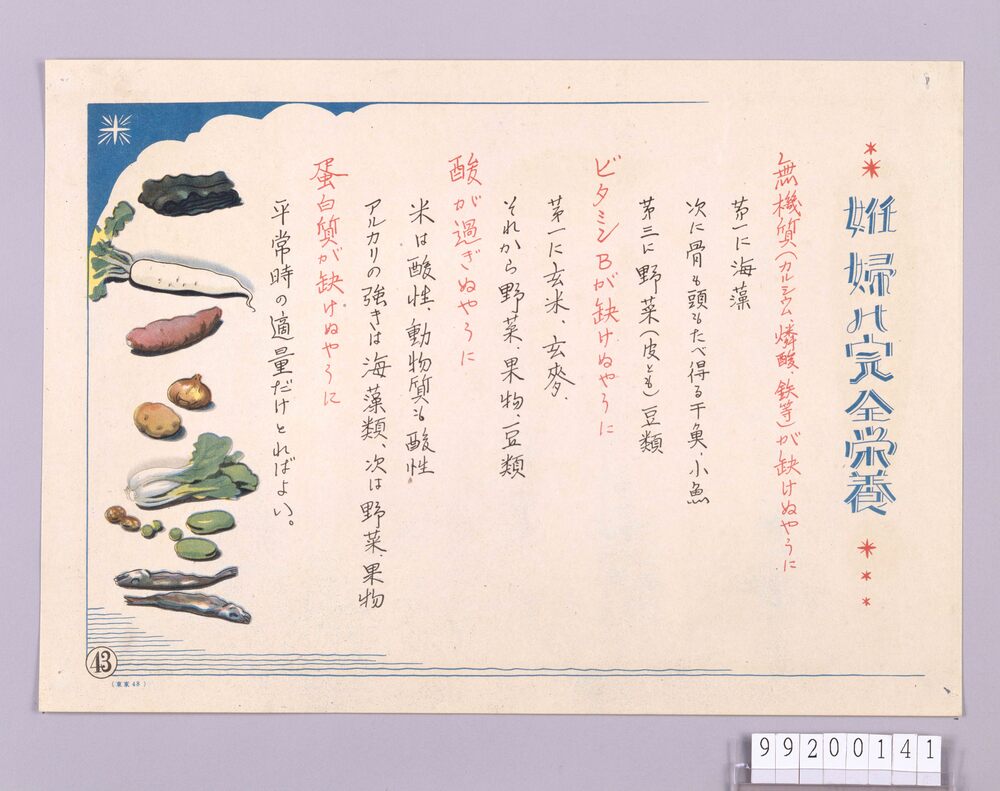 妊婦の完全栄養
無機質(カルシウム、燐酸、鉄等)が缺けぬやうに
第一に海藻
次に骨も頭もたべ得る干魚、小魚
第三に野菜(皮とも)豆類
ビタミンBが缺けぬやうに
第一に玄米、玄麥、
それから野菜、果物、豆類
酸が過ぎぬやうに
米は酸性、動物質も酸性
アルカリの強きは海藻類、次は野菜、果物
蛋白質が缺けぬやうに
平常時の適量だけとればよい。
43
(東京48)
99200141